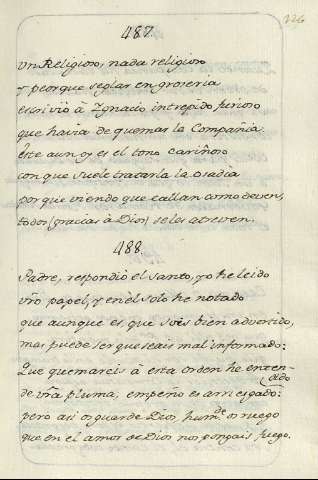 226
487.
Un Religioso, nada religioso
y peor que seglar en groseria
escrivió à Ygnacio intrepido furioso
que havia de quemar la Compañia
Este aun oy es el tono cariñoso
con que suele tratarla la osadia
porque viendo que callan como deven,
todos (gracias à Dios) se les atreven.
488.
Padre, respondió el santo, yo he leido
vrõ papel, y en èl solo he notado
que aunque es que sois bien advertido,
mas puede ser que seais mal informado:
Que quemareis à esta orden he enten-
dido
de vrã pluma, empeño es arriesgado:
pero asi os guarde Dios hum.de os ruego
que en el amor de Dios nos pongais fuego.